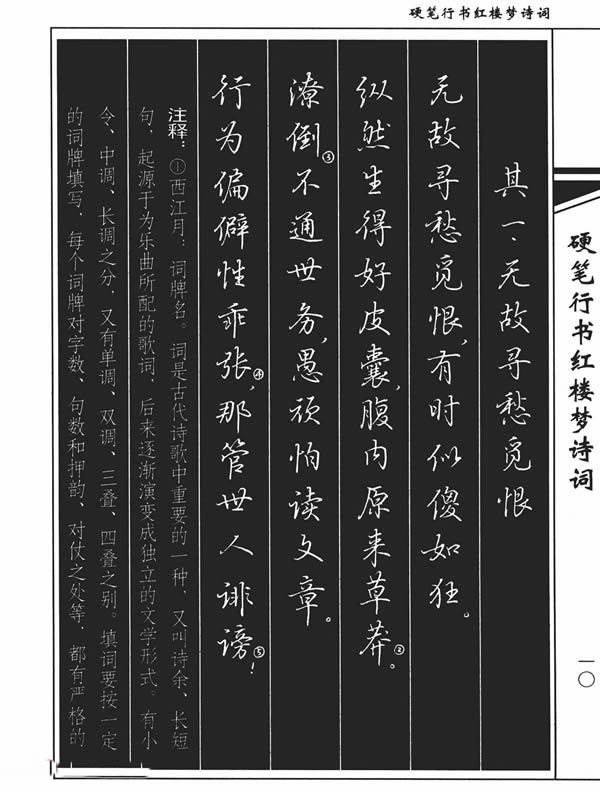 硬笔行书红楼梦诗词
硬笔行书红楼梦诗词
一〇
其一、无故寻愁觅恨
无故寻愁觅恨,有时似傻如狂。
纵然生得好皮囊,腹内原来草莽②。
潦倒③不通世务,愚顽怕读文章。
行为偏僻性乖张④,那管世人诽谤⑤!
注释:①西江月:词牌名。词是古代诗歌中重要的一种,又叫诗余、长短
句,起源于为乐曲所配的歌词,后来逐渐演变成独立的文学形式。有小
令、中调、长调之分,又有单调、双调、三叠、四叠之别。填词要按一定
的词牌填写,每个词牌对字数、句数和押韵、对仗之处等,都有严格的